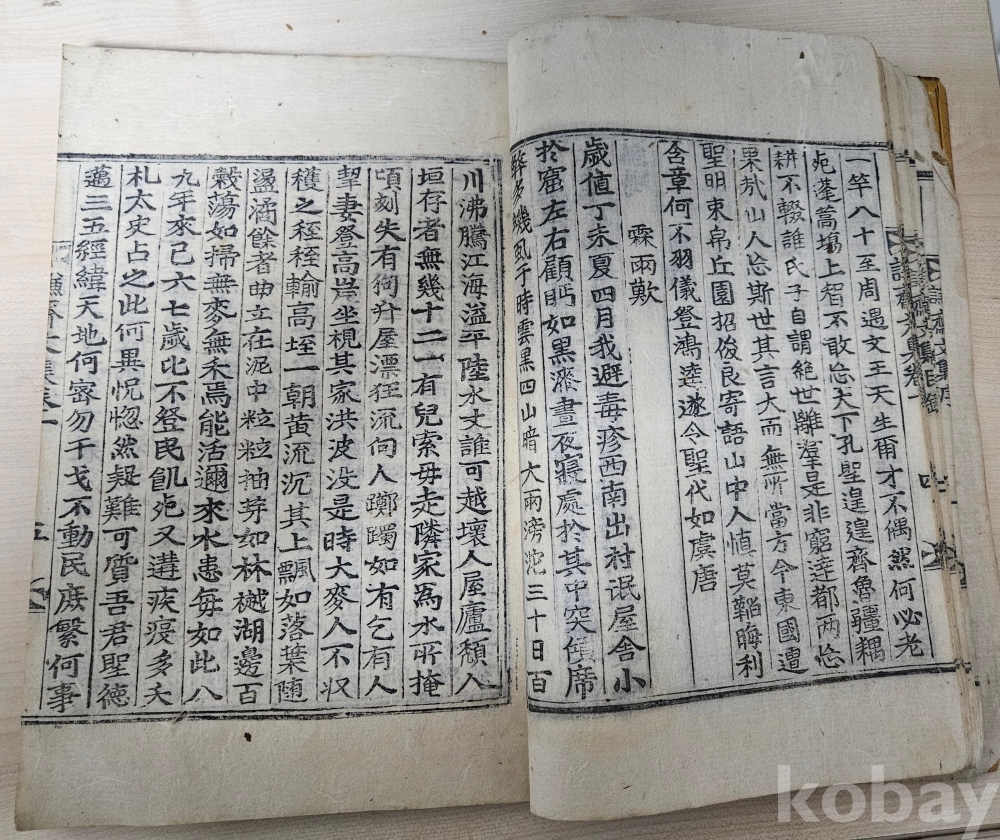 一竿八十至周遇文王天生甭才不偶然何必老
死蓬蒿場上智不敢忘天下孔聖遑遑齊魯疆耦
耕不輟誰氏子自謂絶世離羣是非窮達都兩忘
果㢤山人忘斯世其言大而無所當方今東國遭
聖明束帛丘園招俊良寄語山中人愼莫韜晦利
含章何不羽儀登鴻逵遂令聖代如虞唐
霖雨歎
歲值丁未夏四月我避毒疹西南出村氓屋舍小
於窟左右顧眄如黑漆晝夜寢處於其中突傾席
弊多蟣虱于時雲黑四山暗大雨滂沱三十日百
川沸騰江海溢平陸水丈誰可越壞人屋廬頹人
垣存者無幾十二一有兒索母走隣家爲水所掩
頃刻失有狗升屋漂狂流向人躑躅如有乞有人
挈妻登高岸坐視其家洪波没是時大麥人不収
穫之秷秷輸高垤一朝黄流沉其上飄如落葉随
盪潏餘者曲立在泥中粒粒抽芽如林樾湖邊百
穀蕩如掃無麥無禾焉能活邇來水患每如此八
九年來已六七歲比不登民飢死又遘疾疫多夭
札太史占之此何異怳惚然疑難可質吾君聖德
邁三五經緯天地何密勿干戈不動民庶繁何事
齋文集卷一
五
kobay